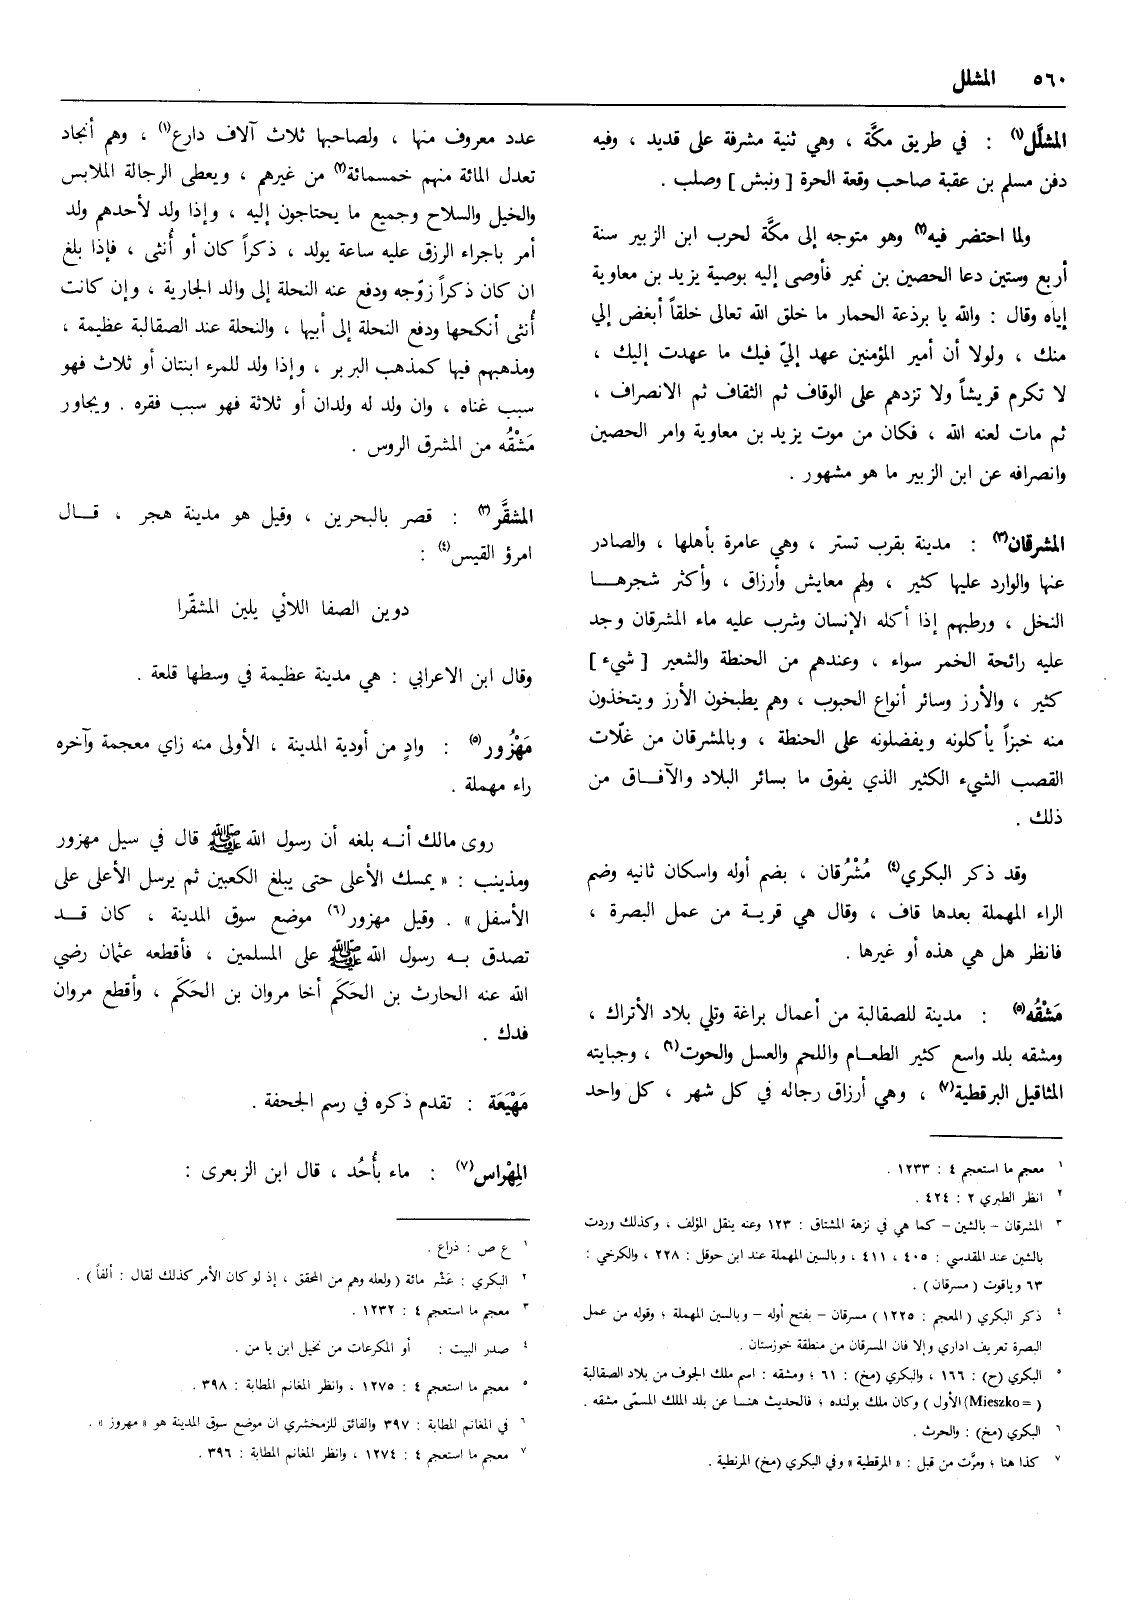 ٥٦٠ المشلل
المشلَّل(١) : في طريق مكَّة ، وهي ثنية مشرفة على قديد ، وفيه
دفن مسلم بن عقبة صاحب وقعة الحرة [ ونبش ] وصلب .
ولما احتضر فيه(٢) وهو متوجه إلى مكَّة لحرب ابن الزبير سنة
أربع وستين دعا الحصين بن نمير فأوصى إليه بوصية يزيد بن معاوية
إياه وقال : والله يا برذعة الحمار ما خلق الله تعالى خلقاً أبغض إلي
منك ، ولولا أن أمير المؤمنين عهد إليّ فيك ما عهدت إليك ،
لا تكرم قريشاً ولا تزدهم على الوقاف ثم الثقاف ثم الانصراف ،
ثم مات لعنه الله ، فكان من موت يزيد بن معاوية وامر الحصين
وانصرافه عن ابن الزبير ما هو مشهور .
المشرقان(٣) : مدينة بقرب تستر ، وهي عامرة بأهلها ، والصادر
عنها والوارد عليها كثير ، ولهم معايش وأرزاق ، وأكثر شجرهــا
النخل ، ورطبهم إذا أكله الإنسان وشرب عليه ماء المشرقان وجد
عليه رائحة الخمر سواء ، وعندهم من الحنطة والشعير [ شيء ]
كثير ، والأرز وسائر أنواع الحبوب ، وهم يطبخون الأرز ويتخذون
منه خبزاً يأكلونه ويفضلونه على الحنطة ، وبالمشرقان من غلّات
القصب الشيء الكثير الذي يفوق ما بسائر البلاد والآفــاق من
ذلك .
وقد ذكر البكري(٤) مُشْرُقان ، بضم أوله واسكان ثانيه وضم
الراء المهملة بعدها قاف ، وقال هي قريــة من عمل البصرة ،
فانظر هل هي هذه أو غيرها .
مَشْقُه(٥) : مدينة للصقالبة من أعمال براغة وتلي بلاد الأتراك ،
ومشقه بلد واسع كثير الطعــام واللحم والعسل والحوت(٦) ، وجبايته
المثاقيل البرقطية(٧) ، وهي أرزاق رجاله في كل شهر ، كل واحد
١ معجم ما استعجم ٤ : ١٢٣٣ .
٢ انظر الطبري ٢ : ٤٢٤ .
٣ المشرقان – بالشين – كما هي في نزهة المشتاق : ١٢٣ وعنه ينقل المؤلف ، وكذلك وردت
بالشين عند المقدسي : ٤٠٥ ، ٤١١ ، وبالسين المهملة عند ابن حوقل : ٢٢٨ ، والكرخي :
٦٣ وياقوت ( مسرقان ) .
٤ ذكر البكري ( المعجم : ١٢٢٥ ) مسرقان – بفتح أوله – وبالسين المهملة ؛ وقوله من عمل
البصرة تعريف اداري وإلا فان المسرقان من منطقة خوزستان .
٥ البكري (ح) : ١٦٦ ، والبكري (مخ) : ٦١ ؛ ومشقه : اسم ملك الجوف من بلاد الصقالبة
( = Mieszko) الأول ) وكان ملك بولنده ؛ فالحديث هنــا عن بلد الملك المسمّى مشقه .
٦ البكري (مخ) : والحرث .
٧ كذا هنا ؛ ومرَّت من قبل : « المرقطية » وفي البكري (مخ) المرنطية .
عدد معروف منها ، ولصاحبها ثلاث آلاف دارع(١) ، وهم أنجاد
تعدل المائة منهم خمسمائة(٢) من غيرهم ، ويعطى الرجالة الملابس
والخيل والسلاح وجميع ما يحتاجون إليه ، وإذا ولد لأحدهم ولد
أمر باجراء الرزق عليه ساعة يولد ، ذكراً كان أو أُنثى ، فإذا بلغ
ان كان ذكراً زوّجه ودفع عنه النحلة إلى والد الجارية ، وإن كانت
أُنثى أنكحها ودفع النحلة إلى أبيها ، والنحلة عند الصقالبة عظيمة ،
ومذهبهم فيها كمذهب البربر ، وإذا ولد للمرء ابنتان أو ثلاث فهو
سبب غناه ، وان ولد له ولدان أو ثلاثة فهو سبب فقره . ويجاور
مَشْقُه من المشرق الروس .
المشقَّر(٣) : قصر بالبحرين ، وقيل هو مدينة هجر ، قــال
امرؤ القيس(٤) :
دوين الصفا اللائي يلين المشقّرا
وقال ابن الاعرابي : هي مدينة عظيمة في وسطها قلعة .
مَهْزُور(٥) : وادٍ من أودية المدينة ، الأولى منه زاي معجمة وآخره
راء مهملة .
روى مالك أنــه بلغه أن رسول الله ﷺ قال في سيل مهزور
ومذينب : « يمسك الأعلى حتى يبلغ الكعبين ثم يرسل الأعلى على
الأسفل » . وقيل مهزور(٦) موضع سوق المدينة ، كان قــد
تصدق بــه رسول الله ﷺ على المسلمين ، فأقطعه عثمان رضي
الله عنه الحارث بن الحَكَم أخا مروان بن الحَكَم ، وأقطع مروان
فدك .
مَهْيَعَة : تقدم ذكره في رسم الجحفة .
المِهْراس(٧) : ماء بأُحُد ، قال ابن الزبعرى :
١ ع ص : ذراع .
٢ البكري : عَشْر مائة ( ولعله وهم من المحقق ، إذ لو كان الأمر كذلك لقال : ألفاً ) .
٣ معجم ما استعجم ٤ : ١٢٣٢ .
٤ صدر البيت : أو المكرعات من نخيل ابن يامن .
٥ معجم ما استعجم ٤ : ١٢٧٥ ، وانظر المغانم المطابة : ٣٩٨ .
٦ في المغانم المطابة : ٣٩٧ والفائق للزمخشري ان موضع سوق المدينة هو « مهروز » .
٧ معجم ما استعجم ٤ : ١٢٧٤ ، وانظر المغانم المطابة : ٣٩٦ .